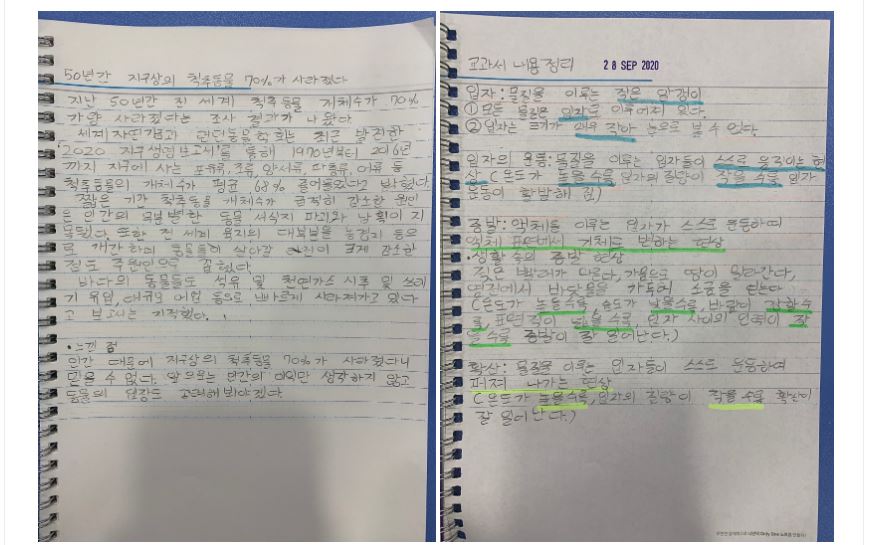 50년간 지구상의 척추동물 70%가 사라졌다
지난 50년간 전 세계 척추동물 개체수가 70%
가량 사라졌다는 조사 결과가 나왔다.
세계자연기금과 런던동물학회는 최근 발간한
'2020 지구생명보고서'를 통해 1970년부터 2016년
까지 지구에 사는 포유류, 조류, 양서류, 파충류, 어류 등
척추동물의 개체수가 평균 68% 줄어들었다고 밝혔다.
짧은 기간 척추동물 개체수가 급격히 감소한 원인
은 인간의 무분별한 동물 서식지 파괴와 남획이 지
목됐다. 또한 전 세계 육지의 대부분을 농경지 등으
로 개간하여 동물들이 살아갈 공간이 크게 감소한
점도 주원인으로 꼽혔다.
바다의 동물들도 석유 및 천연가스 시추 및 쓰레
기 유입, 대규모 어업 등으로 빠르게 사라져가고 있다
고 보고서는 지적했다.
•느낀 점
인간 때문에 지구상의 척추동물 70%가 사라졌다니
믿을 수 없다. 앞으로는 인간의 이익만 생각하지 않고
동물의 입장도 고려해봐야겠다.
교과서 내용정리 28 SEP 2020
입자: 물질을 이루는 작은 알갱이
① 모든 물질은 입자로 이루어져 있다.
② 입자는 크기가 매우 작아 눈으로 볼 수 없다.
입자의 운동: 물질을 이루는 입자들이 스스로 움직이는 현
상 (온도가 높을수록, 입자의 질량이 작을 수록 입자
운동이 활발해 짐)
증발: 액체를 이루는 입자가 스스로 운동하여
액체 표면에서 기체로 변하는 현상
•생활 속의 증발 현상
젖은 빨래가 마른다, 가뭄으로 땅이 갈라진다,
염전에서 바닷물을 가두어 소금을 얻는다
(온도가 높을수록, 습도가 낮을수록, 바람이 강할수
록, 표면적이 넓을 수록, 입자 사이의 인력이 작
을수록 증발이 잘 일어난다.)
확산: 물질을 이루는 입자들이 스스로 운동하여
퍼져 나가는 현상
(온도가 높을수록, 입자의 질량이 작을 수록 확산이
잘 일어난다.)